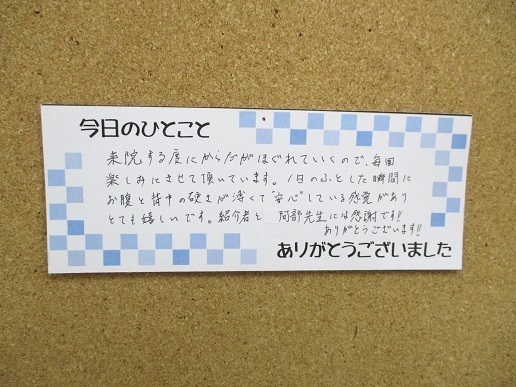 今日のひとこと
来院する度にからだがほぐれていくので、毎回
楽しみにさせて頂いています。1日のふとした瞬間に
お腹と背中の硬さが薄くて"安心"している感覚があり
とても嬉しいです。紹介者と 阿部先生には感謝です!!
ありがとうございます!!
ありがとうございました